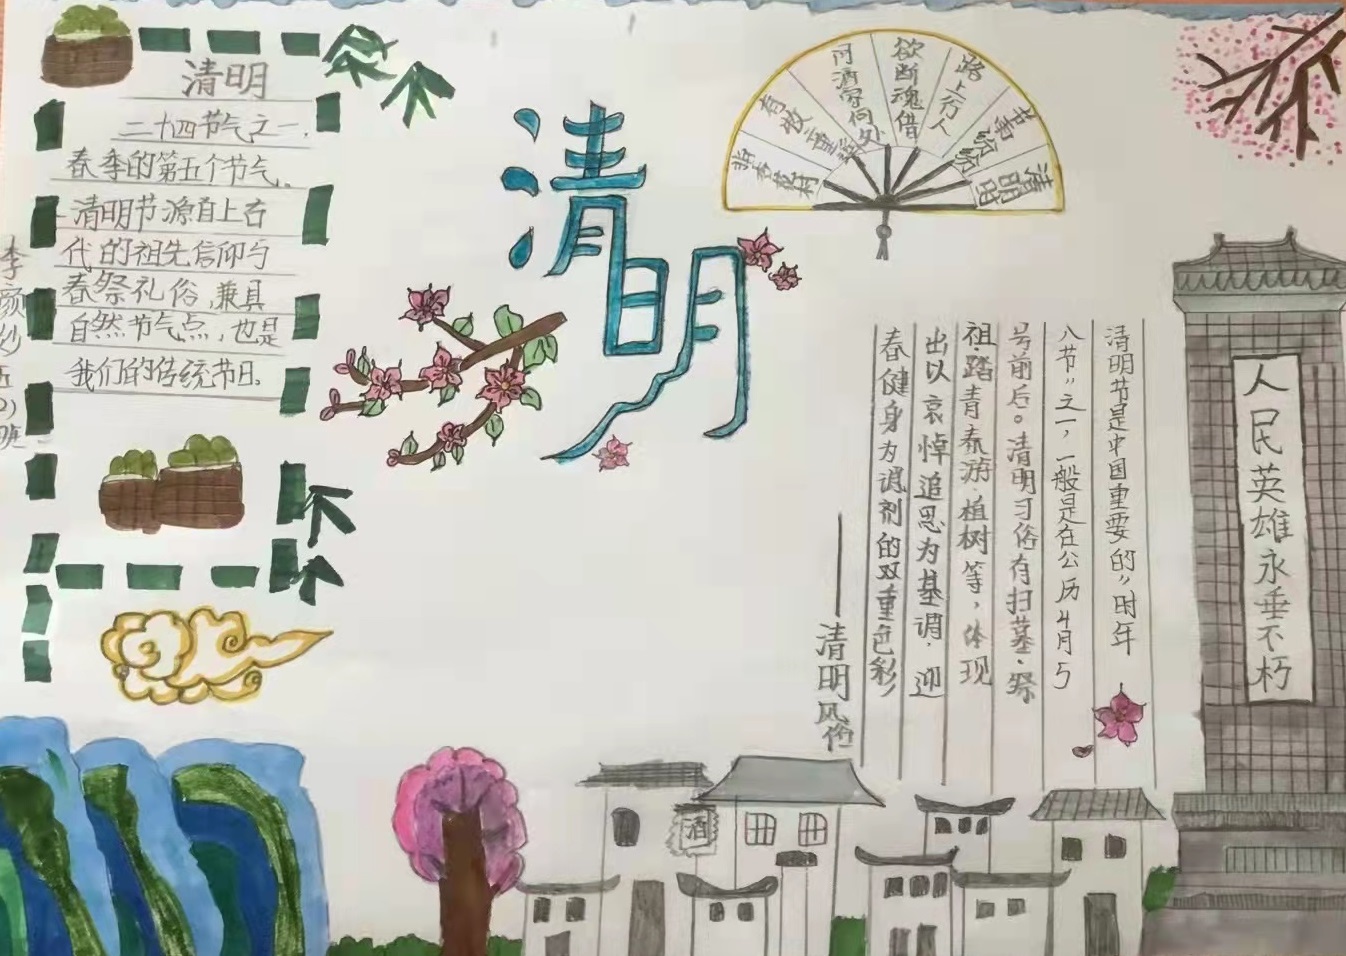 清明
二十四节气之一.
春季的第五个节气。
清明节源自上古
代的祖先信仰与
春祭礼俗,兼具
自然节气点,也是
我们的传统节日.
清明
清明时
节雨纷纷
路上行人
欲断魂借
问酒家何处
有牧童
指杏花村
清明节是中国重要的“时年
八节”之一,一般是在公历4月5
号前后。清明习俗有扫墓、祭
祖、踏青春游、植树等,体现
出以哀悼追思为基调、迎
春健身为调剂的双重色彩
——清明风俗
人民英雄永垂不朽
酒